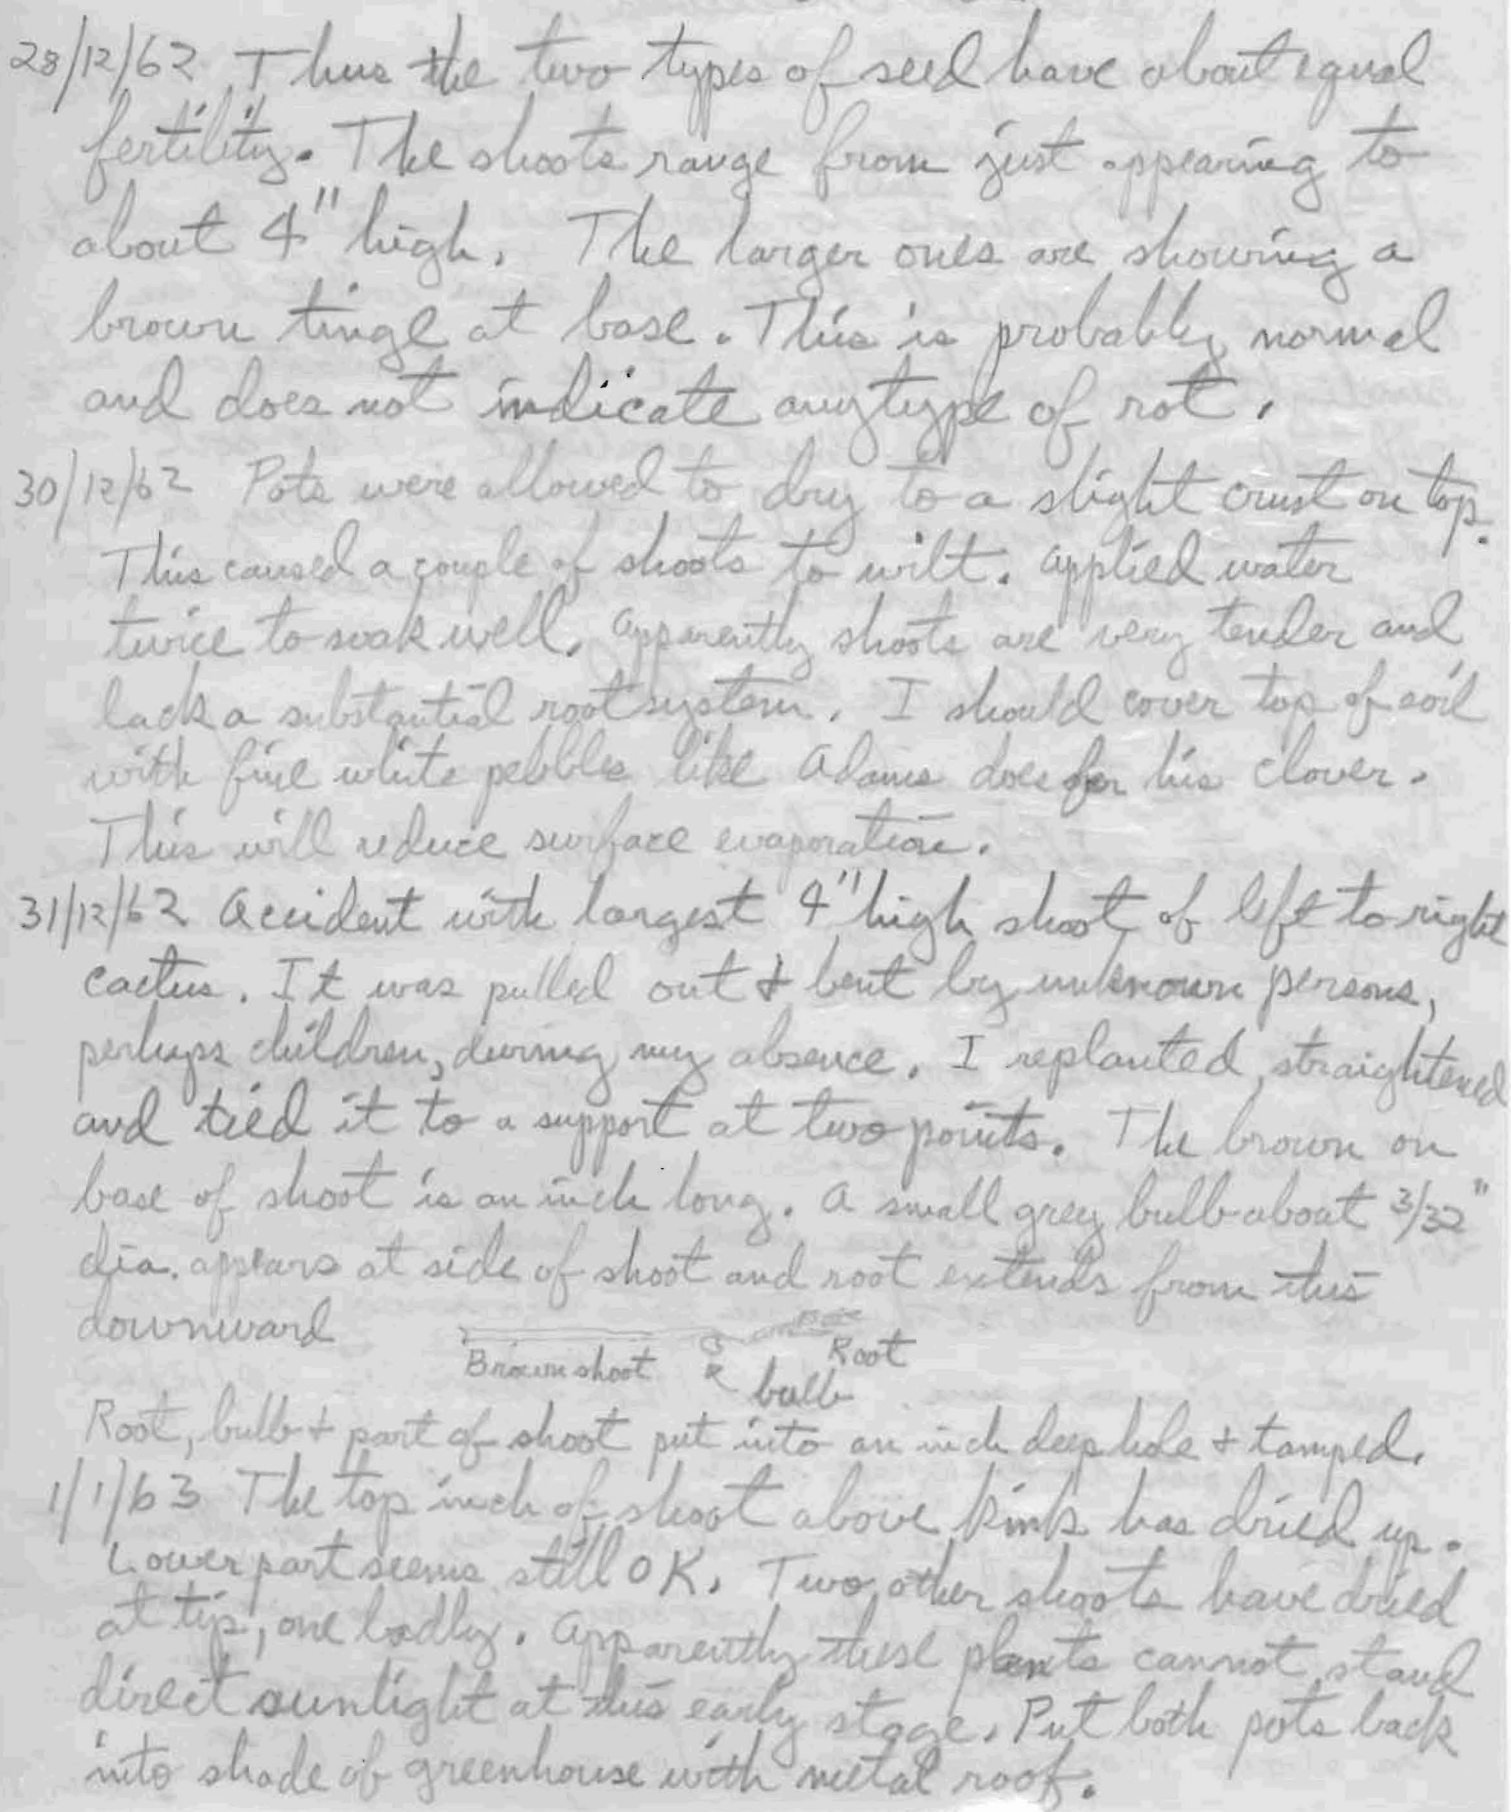 28/12/62 Thus the two types of seed have about equal
fertility. The shoots range from just appearing to
about 4" high. The larger ones are showing a
brown tinge at base. This is probably normal
and does not indicate any type of rot.
30/12/62 Pots were allowed to dry to a slight crust on top.
This caused a couple of shoots to wilt. Applied water
twice to soak well. Apparently shoots are very tender and
lack a substantial root system. I should cover top of soil
with fine white pebbles like Adams does for his clover.
This will reduce surface evaporation.
31/12/62 Accident with largest 4" high shoot of left to right
cactus. It was pulled out & bent by unknown persons,
perhaps children, during my absence. I replanted, straightened
and tied it to a support at two points. The brown on
base of shoot is an inch long. A small grey bulb about 3/32"
dia. appears at side of shoot and root extends from this
downward
Brown shoot bulb Root
Root, bulb & part of shoot put into an inch deep hole & tamped.
1/1/63 The top inch of shoot above kink has dried up.
Lower part seems still OK. Two other shoots have dried
at tip, one badly. Apparently these plants cannot stand
direct sunlight at this early stage. Put both pots back
into shade of greenhouse with metal roof.